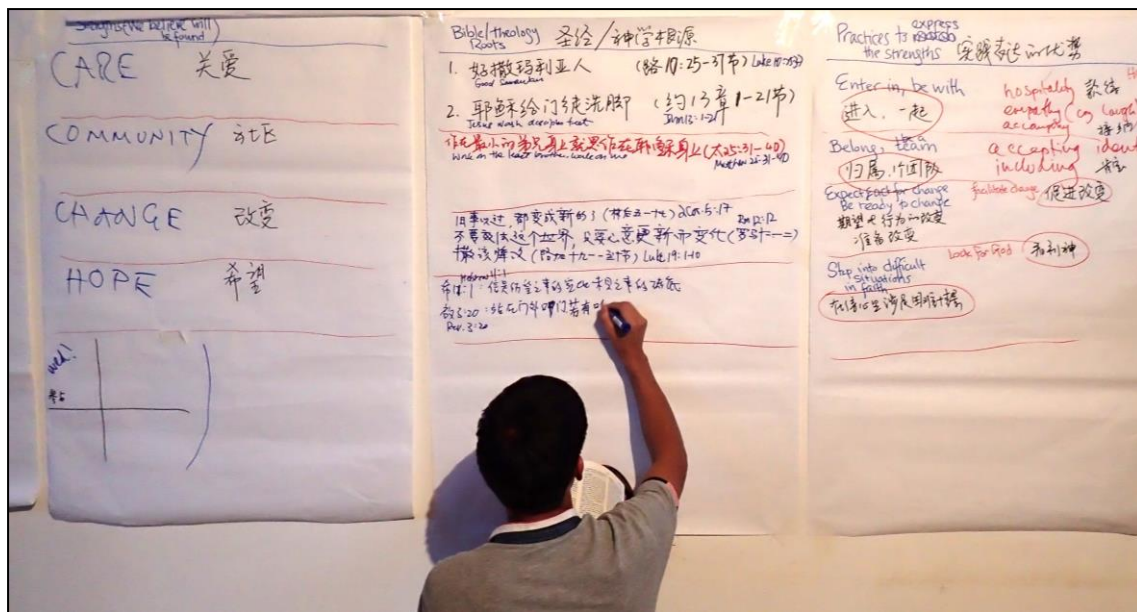 Strengths (we believe will
be found)
CARE 关爱
COMMUNITY 社区
CHANGE 改变
HOPE 希望
well?
Bible/theology
Roots 圣经/神学根源
1. 好撒玛利亚人 (路10:25-37节) Luke 10:25-37
Good Samaritan
2. 耶稣给门徒洗脚 (约13章1-21节)
Jesus wash disciples feet John 13:1-21
作在最小的弟兄身上就是作在耶稣身上(太25:31-40)
Matthew 25:31-40
旧事以过,都变成新的了 (林后五一十七) 2Cor.5:17
Rm 12:12
不要效法这个世界,只要心意更新而变化(罗马十二一二)
撒该悔改 (路加十九一一至十节) Luke 19:1-10
Hebrews 11:1
希11:1:信是所望之事的实底 未见之事的确据
启3:20:站在门外叩门若有
Rev. 3:20
Practices to express
the strengths 实践表达的优势
Enter in, be with
进入,一起
hospitality 款待
empathy
accompany
Belong, team
归属,一个团队
accepting
including
Expect for change
Be ready to change
期望
准备改变
facilitate change 促进改变
Look for God
Step into difficult
situations
in faith